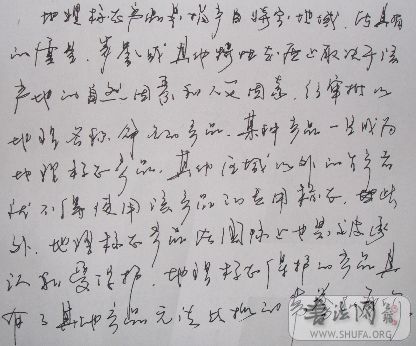 地理标志产品是指产自特定地域,所具有
的质量、声誉或其他特性本质上取决于该
产地的自然因素和人文因素,经审核以
地理名称命名的产品。某种产品一旦成为
地理标志产品,其他区域以外的产品
就不得使用该产品的专用标志。此
外,地理标志产品在国际上也是被承
认和受保护,地理标志保护的产品具
有了其他产品无法比拟的
書法网
WWW.SHUFA.ORG